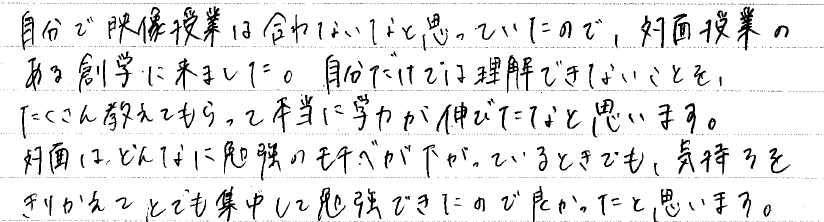 自分で映像授業は合わないなと思っていたので、対面授業の
ある創学に来ました。自分だけでは理解できないことを、
たくさん教えてもらって本当に学力が伸びたなと思います。
対面は、どんなに勉強のモチベが下がっているときでも、気持ちを
きりかえてとても集中して勉強できたので良かったと思います。